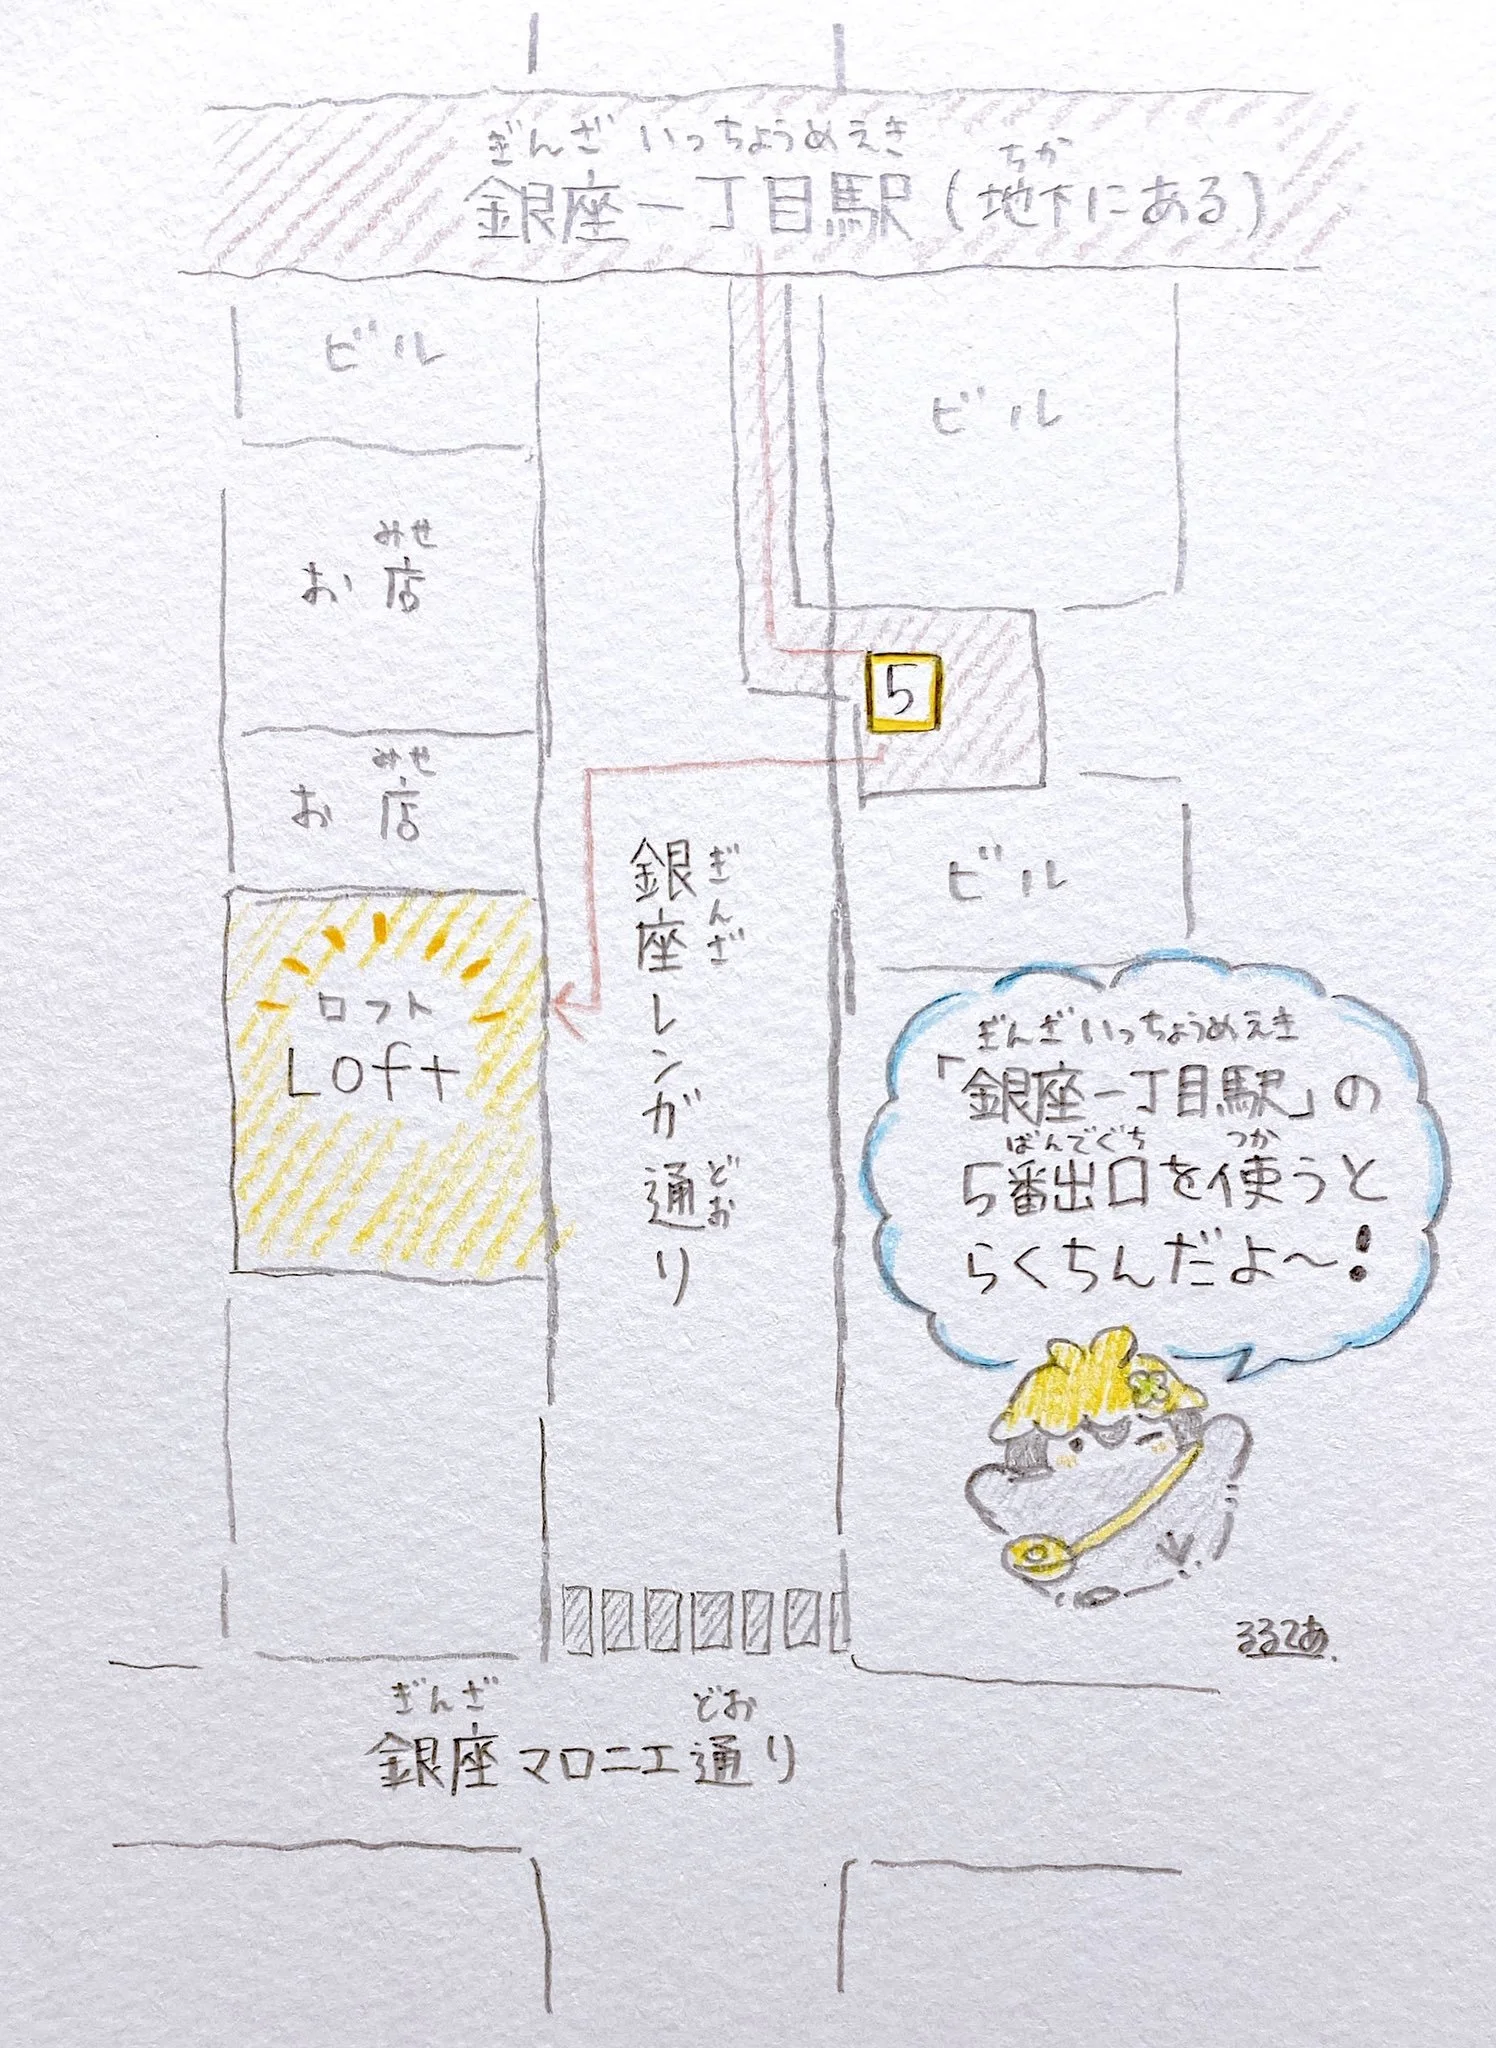 ぎんざ いっちょうめえき
ちか
銀座一丁目駅(地下にある)
ビル
ビル
みせ
お店
5
みせ
お店
ぎんざ どお
銀座レンガ通り
ビル
ロフト
Loft
ぎんざいっちょうめえき
「銀座一丁目駅」の
ばんでぐち つか
5番出口を使うと
らくちんだよ〜!
るるてあ
ぎんざ どお
銀座マロニエ通り